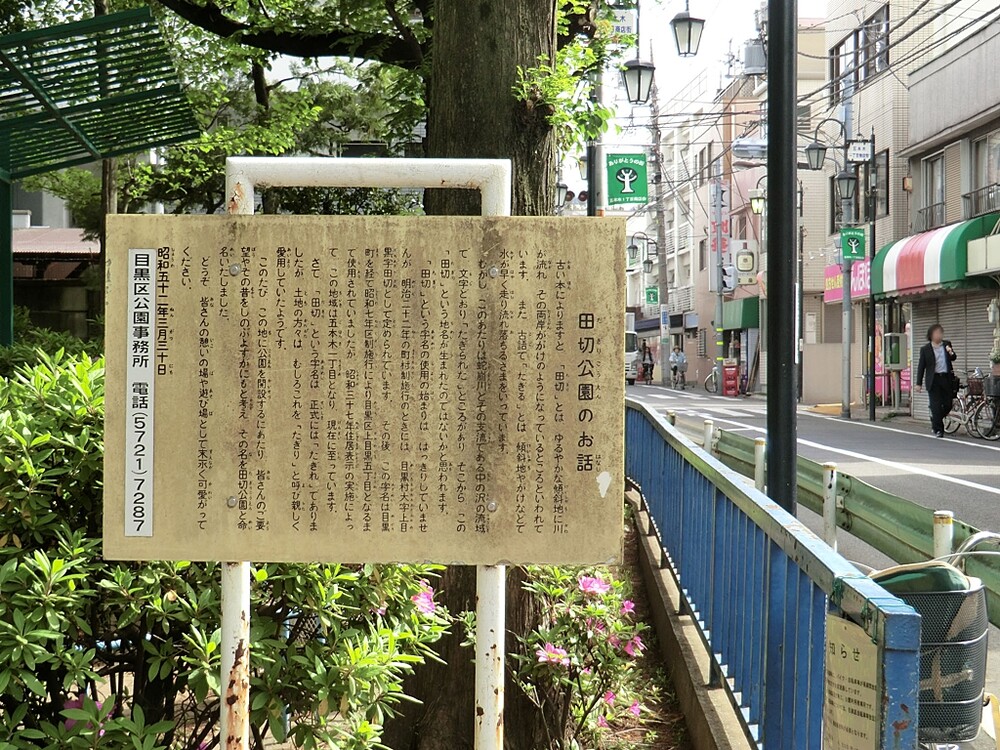 田切公園のお話
古い本によりますと 「田切」とは ゆるやかな傾斜地に川
が流れ その両岸ががけのようになっているところといわれて
います。 また 古語で「たぎる」とは 傾斜地やがけなどで
水が早く走り流れ落ちるさまをいっています。
むかし このあたりは蛇崩川とその支流である中の沢の流域
で 文字どおり「たぎられた」ところがあり そこから この
「田切」という地名が生まれたのではないかと思われます。
「田切」という字名の使用の始まりは はっきりしていませ
んが 明治二十二年の町村制施行のときには 目黒村大字上目
黒字田切として定められています。 その後 この字名は目黒
町を経て昭和七年区制施行により目黒区上目黒五丁目となるま
で使用されていましたが 昭和三十七年住居表示の実施によっ
て この地域は五本木一丁目となり 現在に至っています。
さて 「田切」という字名は 正式には「たきれ」でありま
したが 土地の方々は むしろこれを「たぎり」と呼び親しく
愛用していたようです。
このたび この地に公園を開設するにあたり 皆さんのご要
望やその昔をしのぶよすがにもと考え その名を田切公園と命
名いたしました。
どうぞ 皆さんの憩いの場や遊び場として末永く可愛がって
ください。
昭和五十二年三月三十日
目黒区公園事務所 電話(5721)7287
ありがとうの街
知らせ